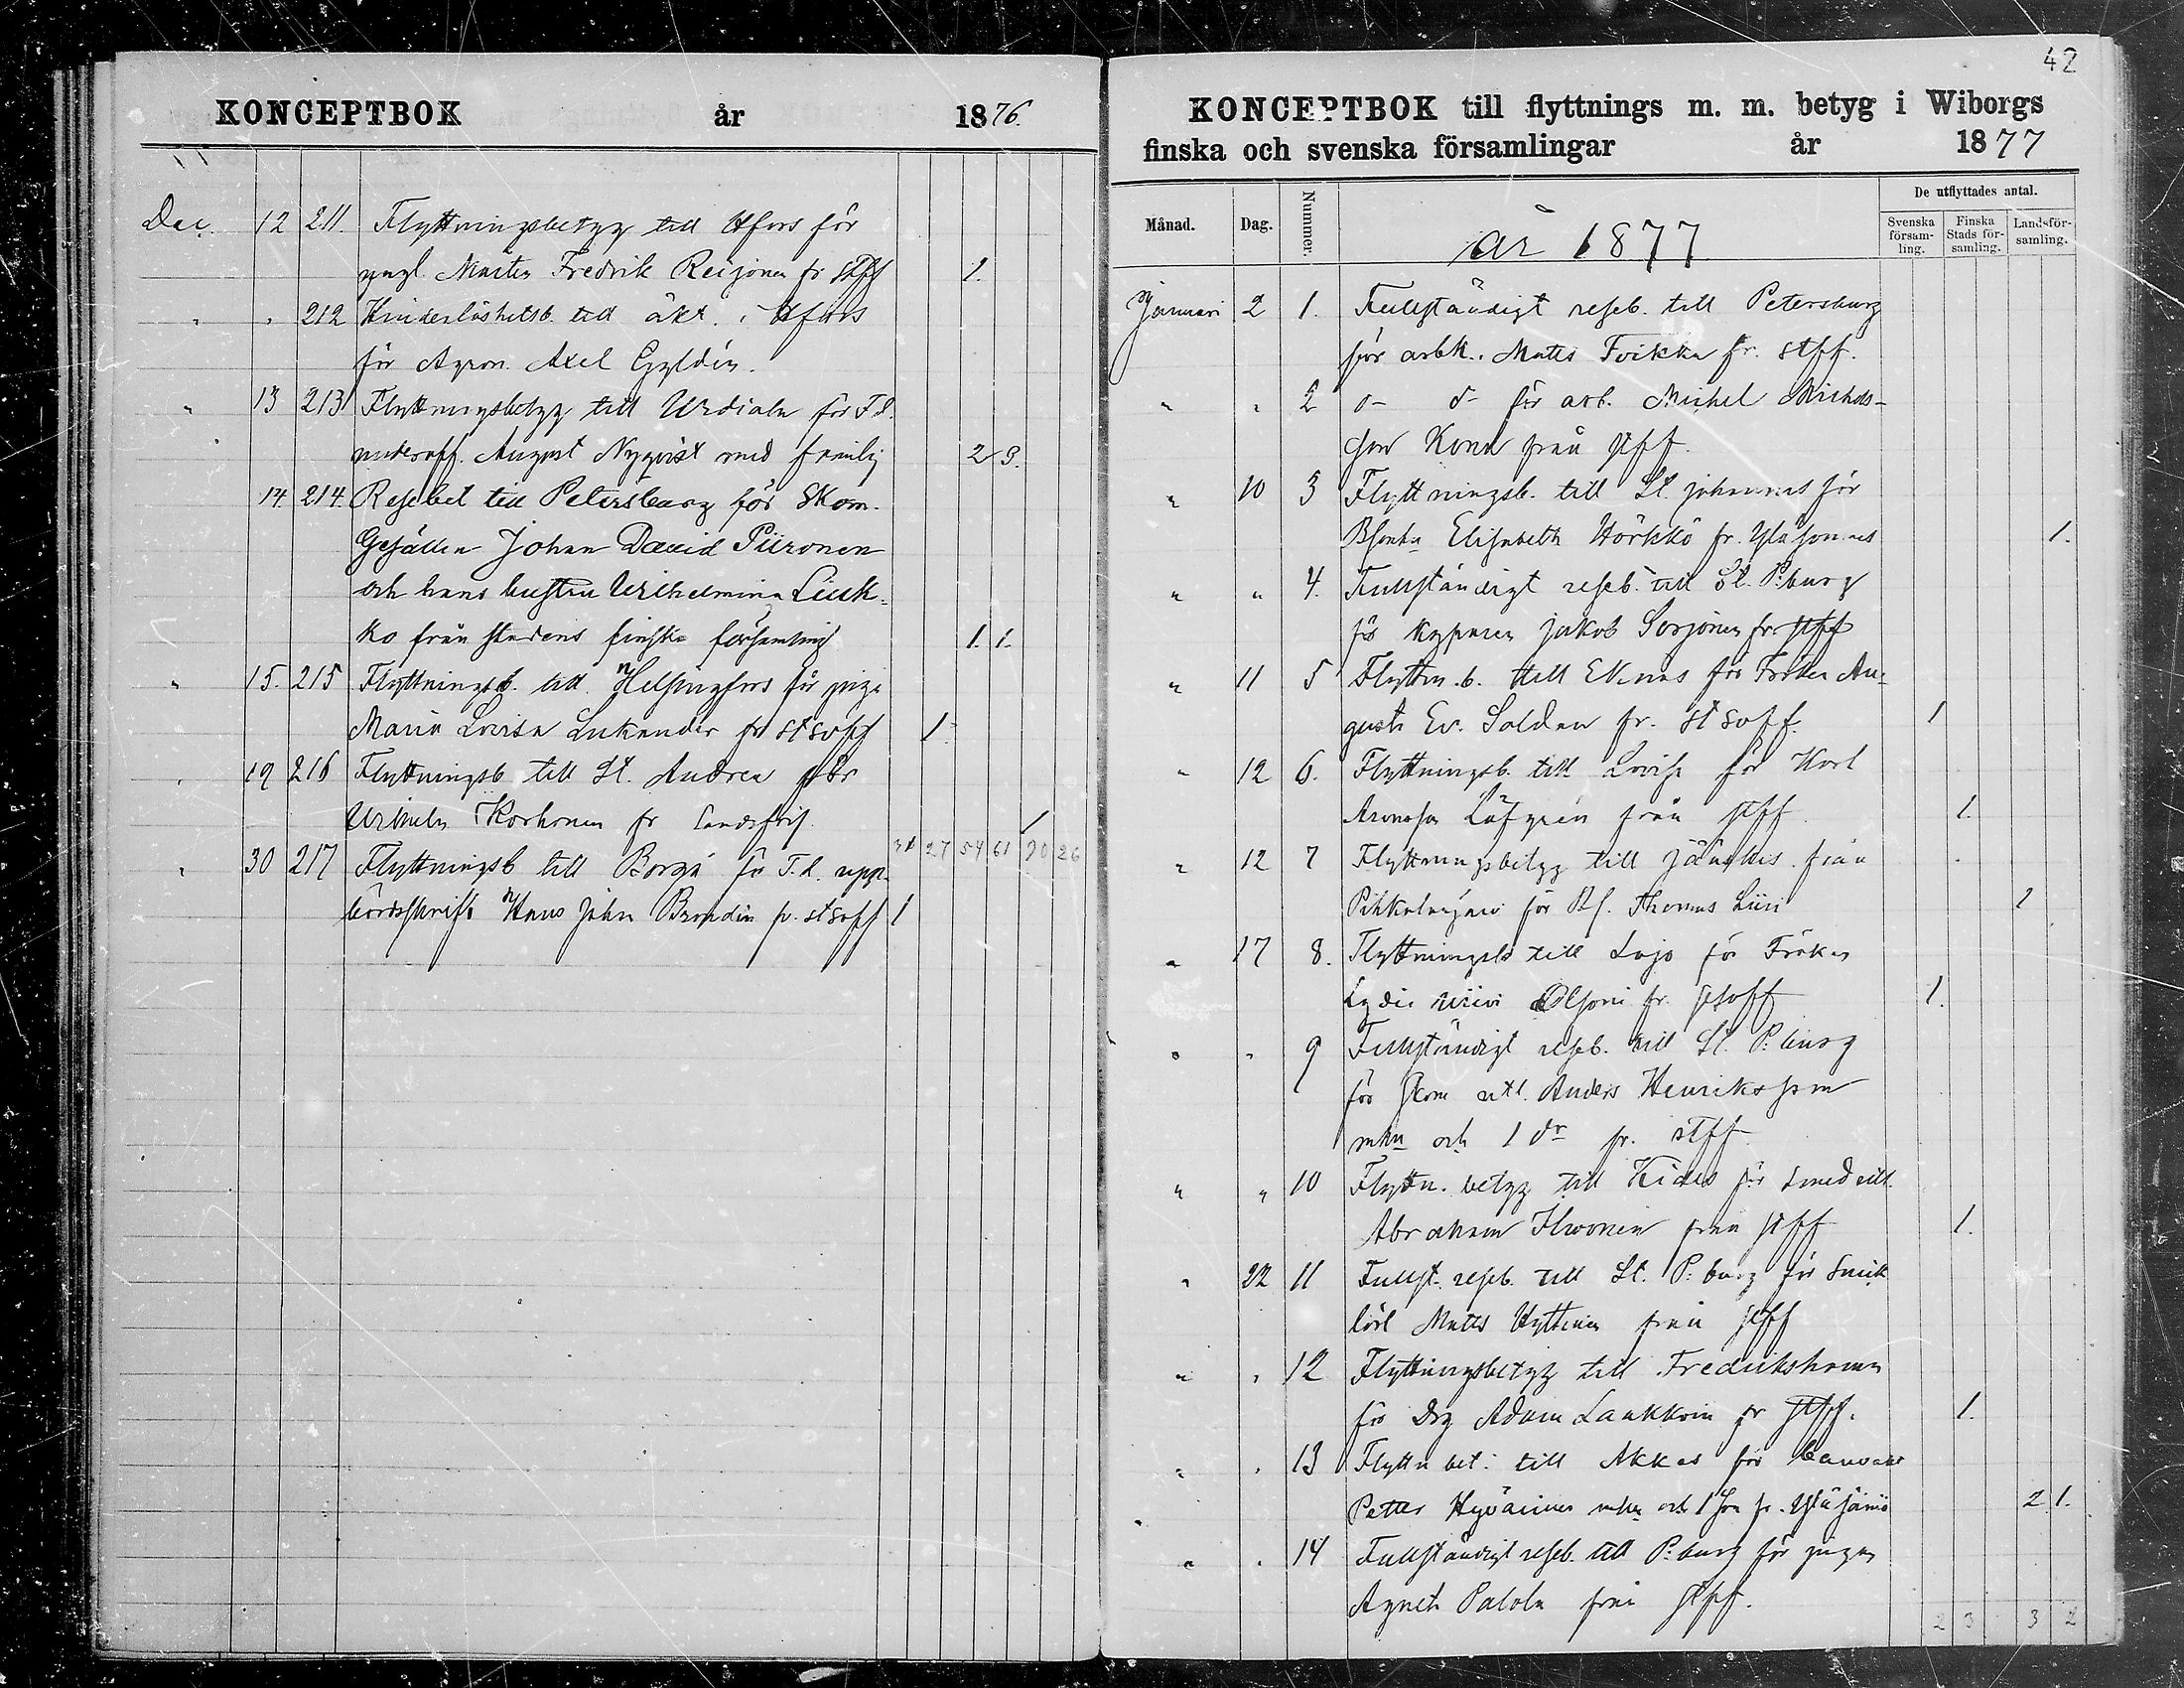 KONCEPTBOK år 1876.
Dec. 12 211. Flyttningsbetyg till Hfors för
yngl. Mårten Fredrik Reijonen fr stff 1.
" " 212 Hinderlöshetsb. till äkt. i Hfors
för Agron. Axel Gyldén.
" 13 213 Flyttningsbetyg till Urdiala för F.d.
underoff. August Nyqvist med familj 2 3.
14. 214. Resebet till Petersburg för Skom.
Gesällen Johan David Piironen
och hans hustru Wilhelmina Liuk-
ko från stadens finska församling 1. 1.
" 15. 215 Flyttningsb. till Helsingfors för piga
Maria Lovisa Lukander fr st svff 1.
" 19 216 Flyttningsb till St. Andrea för
Wilhelm Korhonen fr landsförs 1
" 30 217 Flyttningsb till Borgå för T.d. upp-
27 54 61 90 26
bördsskrifv Hans John Brondin fr. st svff 1
42
KONCEPTBOK till flyttnings m. m. betyg i Wiborgs
finska och svenska församlingar år 1877
Månad. Dag. Nummer. år 1877 De utflyttades antal.
Svenska försam-ling. Finska Stads för-samling. Landsför-samling.
Januari 2 1. Fullständigt reseb. till Petersburg
för arbk. Matts Toikka fr. stff.
" " 2 o- o- för arb. Michel Michels-
son Kona från stff.
" 10 3 Flyttningsb. till St. Johannes för
Elisabeth Hörkkö fr. 1.
" " 4. Fullständigt reseb. till St. P:burg
för kyparen Jakob Sorjonen fr stff
" 11 5 Flyttn.b. till Ekenäs för Fröken Au-
gusta Ev. Soldan fr. st svff. 1
" 12 6. Flyttningsb. till Lovisa för Karl
Aronsson Löfgren från stff 1.
" 12 7 Flyttningsbetyg till Jääskis från
för Thomas Liiri 1
" 17 8. Flyttningsb till Lojo för Fröken
Lydia fr. st svff 1.
" " 9 Fullständigt reseb. till St. P:burg
för Skom Anders Henriksson
mhu och 1 dr fr. stff
" " 10 Flyttn. betyg till Kides för smed
Abraham Ihvonen från stff 1.
" 22 11 Fullst. reseb. till St. P:burg för
lärl Matts Hyttinen från stff
" " 12 Flyttningsbetyg till Fredrikshamn
för Drg Adam Laukkain fr stff. 1.
" " 13 Flyttn bet: till Akkas för
Petter Hyväinen mhu och 1 son fr. 2 1.
" " 14 Fullständigt reseb. till P:burg för pigan
Agneta Palola från stff.
2 3 3 2